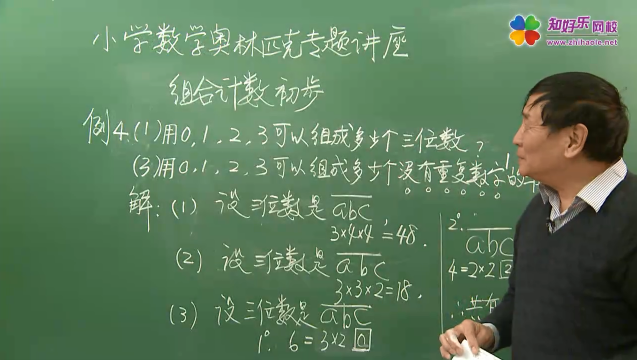 知好乐网校
www.zhihaole.net
小学数学奥林匹克专题讲座
组合计数初步
例4.(1)用0,1,2,3可以组成多少个三位数?
(3)用0,1,2,3可以组成多少个没有重复数字的
解:(1) 设三位数是abc,
3×4×4=48.
(2) 设三位数是abc
3×3×2=18.
(3) 设三位数是abc
1° 6=3×2 0
2°
abc
4=2×2 2
∴共有